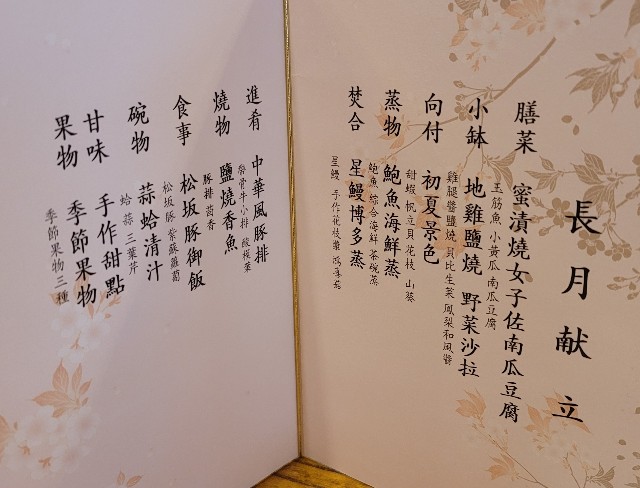 長月献立
膳菜 蜜漬燒女子佐南瓜豆腐
玉筋魚 小黃瓜 南瓜豆腐
小鉢 地雞鹽燒 野菜沙拉
雞腿醬鹽燒 貝比生菜 鳳梨和風醬
向付 初夏景色
甜蝦 帆立貝 花枝 山葵
蒸物 鮑魚海鮮蒸
鮑魚 綜合海鮮 茶碗蒸
焚合 星鰻博多蒸
星鰻 手作花枝漿
進肴 中華風豚排
帶骨牛小排 酸模葉
燒物 鹽燒香魚
豚排 茴香
食事 松坂豚御飯
松坂豚 紫蘇蘿蔔
碗物 蒜蛤清汁
蛤 蒜 三葉芹
甘味 手作甜點
果物 季節果物
季節果物三種